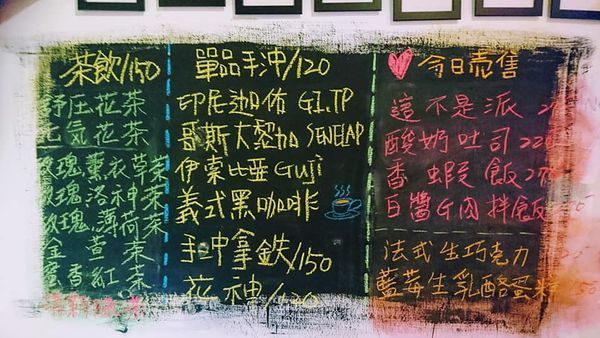 茶飲/150
舒壓花茶
元氣花茶
玫瑰薰衣草茶
玫瑰洛神茶
玫瑰薄荷茶
金萱茶
蜜香紅茶
單品手沖/120
印尼迦佈 G1.TP
哥斯大黎加 SENELAP
伊索比亞 Guji
義式黑咖啡
手沖拿鐵/150
花神/120
今日売售
這不是派
酸奶吐司 220
香蝦飯 270
白醬G肉拌飯
法式生巧克力
藍莓生乳酪蛋糕